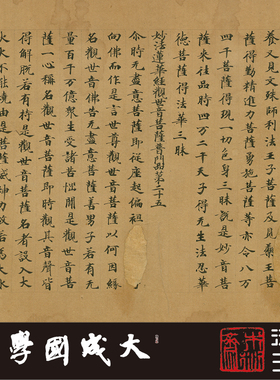 養又見文殊師利法王子菩薩及見藥王菩
薩得勤精進力菩薩勇施菩薩等亦令八万
四千菩薩得現一切色身三昧說是妙音菩
薩來往品時四万二千天子得无生法忍華
德菩薩得法華三昧
妙法蓮華經觀世音菩薩普門品第二十五
尒時无盡意菩薩即從座起偏袒
向佛而作是言世尊觀世音菩薩以何因緣
名觀世音佛告无盡意菩薩善男子若有无
量百千万億眾生受諸苦惱聞是觀世音菩
薩一心稱名觀世音菩薩即時觀其音聲皆
得解脫若有持是觀世音菩薩名者設入大
火火不能燒由是菩薩威神力故若為大水
大成國學